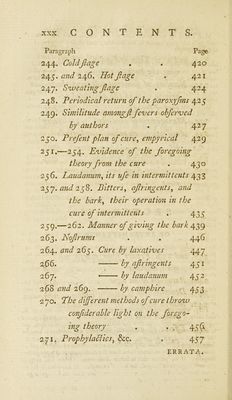 xxx CONTENTS.
Paragraph Page
244. Cold stage . . 420
245. and 246. Hot stage . 421
247. Sweating stage . 424
248. Periodical return of the paroxysms 425
249. Similitude amongst fevers observed
by authors . . 427
250. Present plan of cure, empyrical 429
251.—254. Evidence of the foregoing
theory from the cure . 430
256. Laudanum, its use in intermittents 433
257. and 258. Bitters, astringents, and
the bark, their operation in the
cure of intermittents . 435
259.—262. Manner of giving the bark 439
263. Nostrums . . 446
264. and 265. Cure by laxatives 447
266. —— by astringents 451
267. —— by laudanum 452
268 and 269. —— by camphire . 453
270. The different methods of cure throw
considerable light on the forego-
ing theory . . 456
271. Prophylactics, &c. . 457
ERRATA.